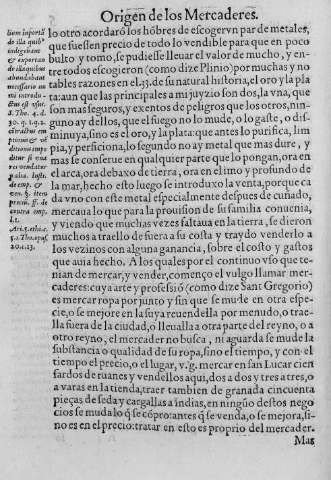 Origen de los Mercaderes.
lo otro acordaró los hōbres de escoger vn par de metales,
que fuessen precio de todo lo vendible para que en poco
bulto y tomo, se pudiesse lleuar el valor de mucho, y en-
tre todos escogieron (como dize Plinio) por muchas y no
tables razones en el .33. de su natural historia, el oro y la pla-
ta: aun que las principales a mi juyzio son dos, la vna, que
son mas seguros, y exentos de peligros que los otros, nin-
guno ay dellos, que el fuego no lo mude, o gaste, o dis-
minuya, sino es el oro, y la plata: que antes lo purifica, lim
pia, y perficiona, lo segundo no ay metal que mas dure, y
mas se conserue en qualquier parte que lo pongan, ora en
el arca, ora debaxo de tierra, ora en el limo y profundo de
la mar, hecho esto luego se introduxo la venta, porque ca
da vno con este metal especialmente despues de cuñado,
mercaua lo que para la prouision de su familia conuenia,
y viendo que muchas vezes faltaua en la tierra, se dieron
muchos a traello de fuera a su costa y traydo venderlo a
los vezinos con alguna ganancia, sobre el costo y gastos
que auia hecho. A los quales por el continuo vso que te-
nian de mercar, y vender, començo el vulgo llamar mer-
caderes: cuya arte y professió (como dize Sant Gregorio)
es mercar ropa por junto y sin que se mude en otra espe-
cie, o se mejore en la suya reuendella por menudo, o trae-
lla fuera de la ciudad, o lleualla a otra parte del reyno, o a
otro reyno, el mercader no busca, ni aguarda se mude la
substancia o qualidad de su ropa, sino el tiempo, y con el
tiempo el precio, o el lugar, v.g. mercar en san Lucar cien
fardos de ruanes y vendellos aqui, dos a dos y tres a tres, o
a varas en la tienda, traer tambien de granada cincuenta
pieças de seda y cargallas a indias, en ningūo destos nego
cios se muda lo q̄ se cōpro: antes q̄ se venda, o se mejora, si-
no es en el precio: tratar en esto es proprio del mercader.
Mas